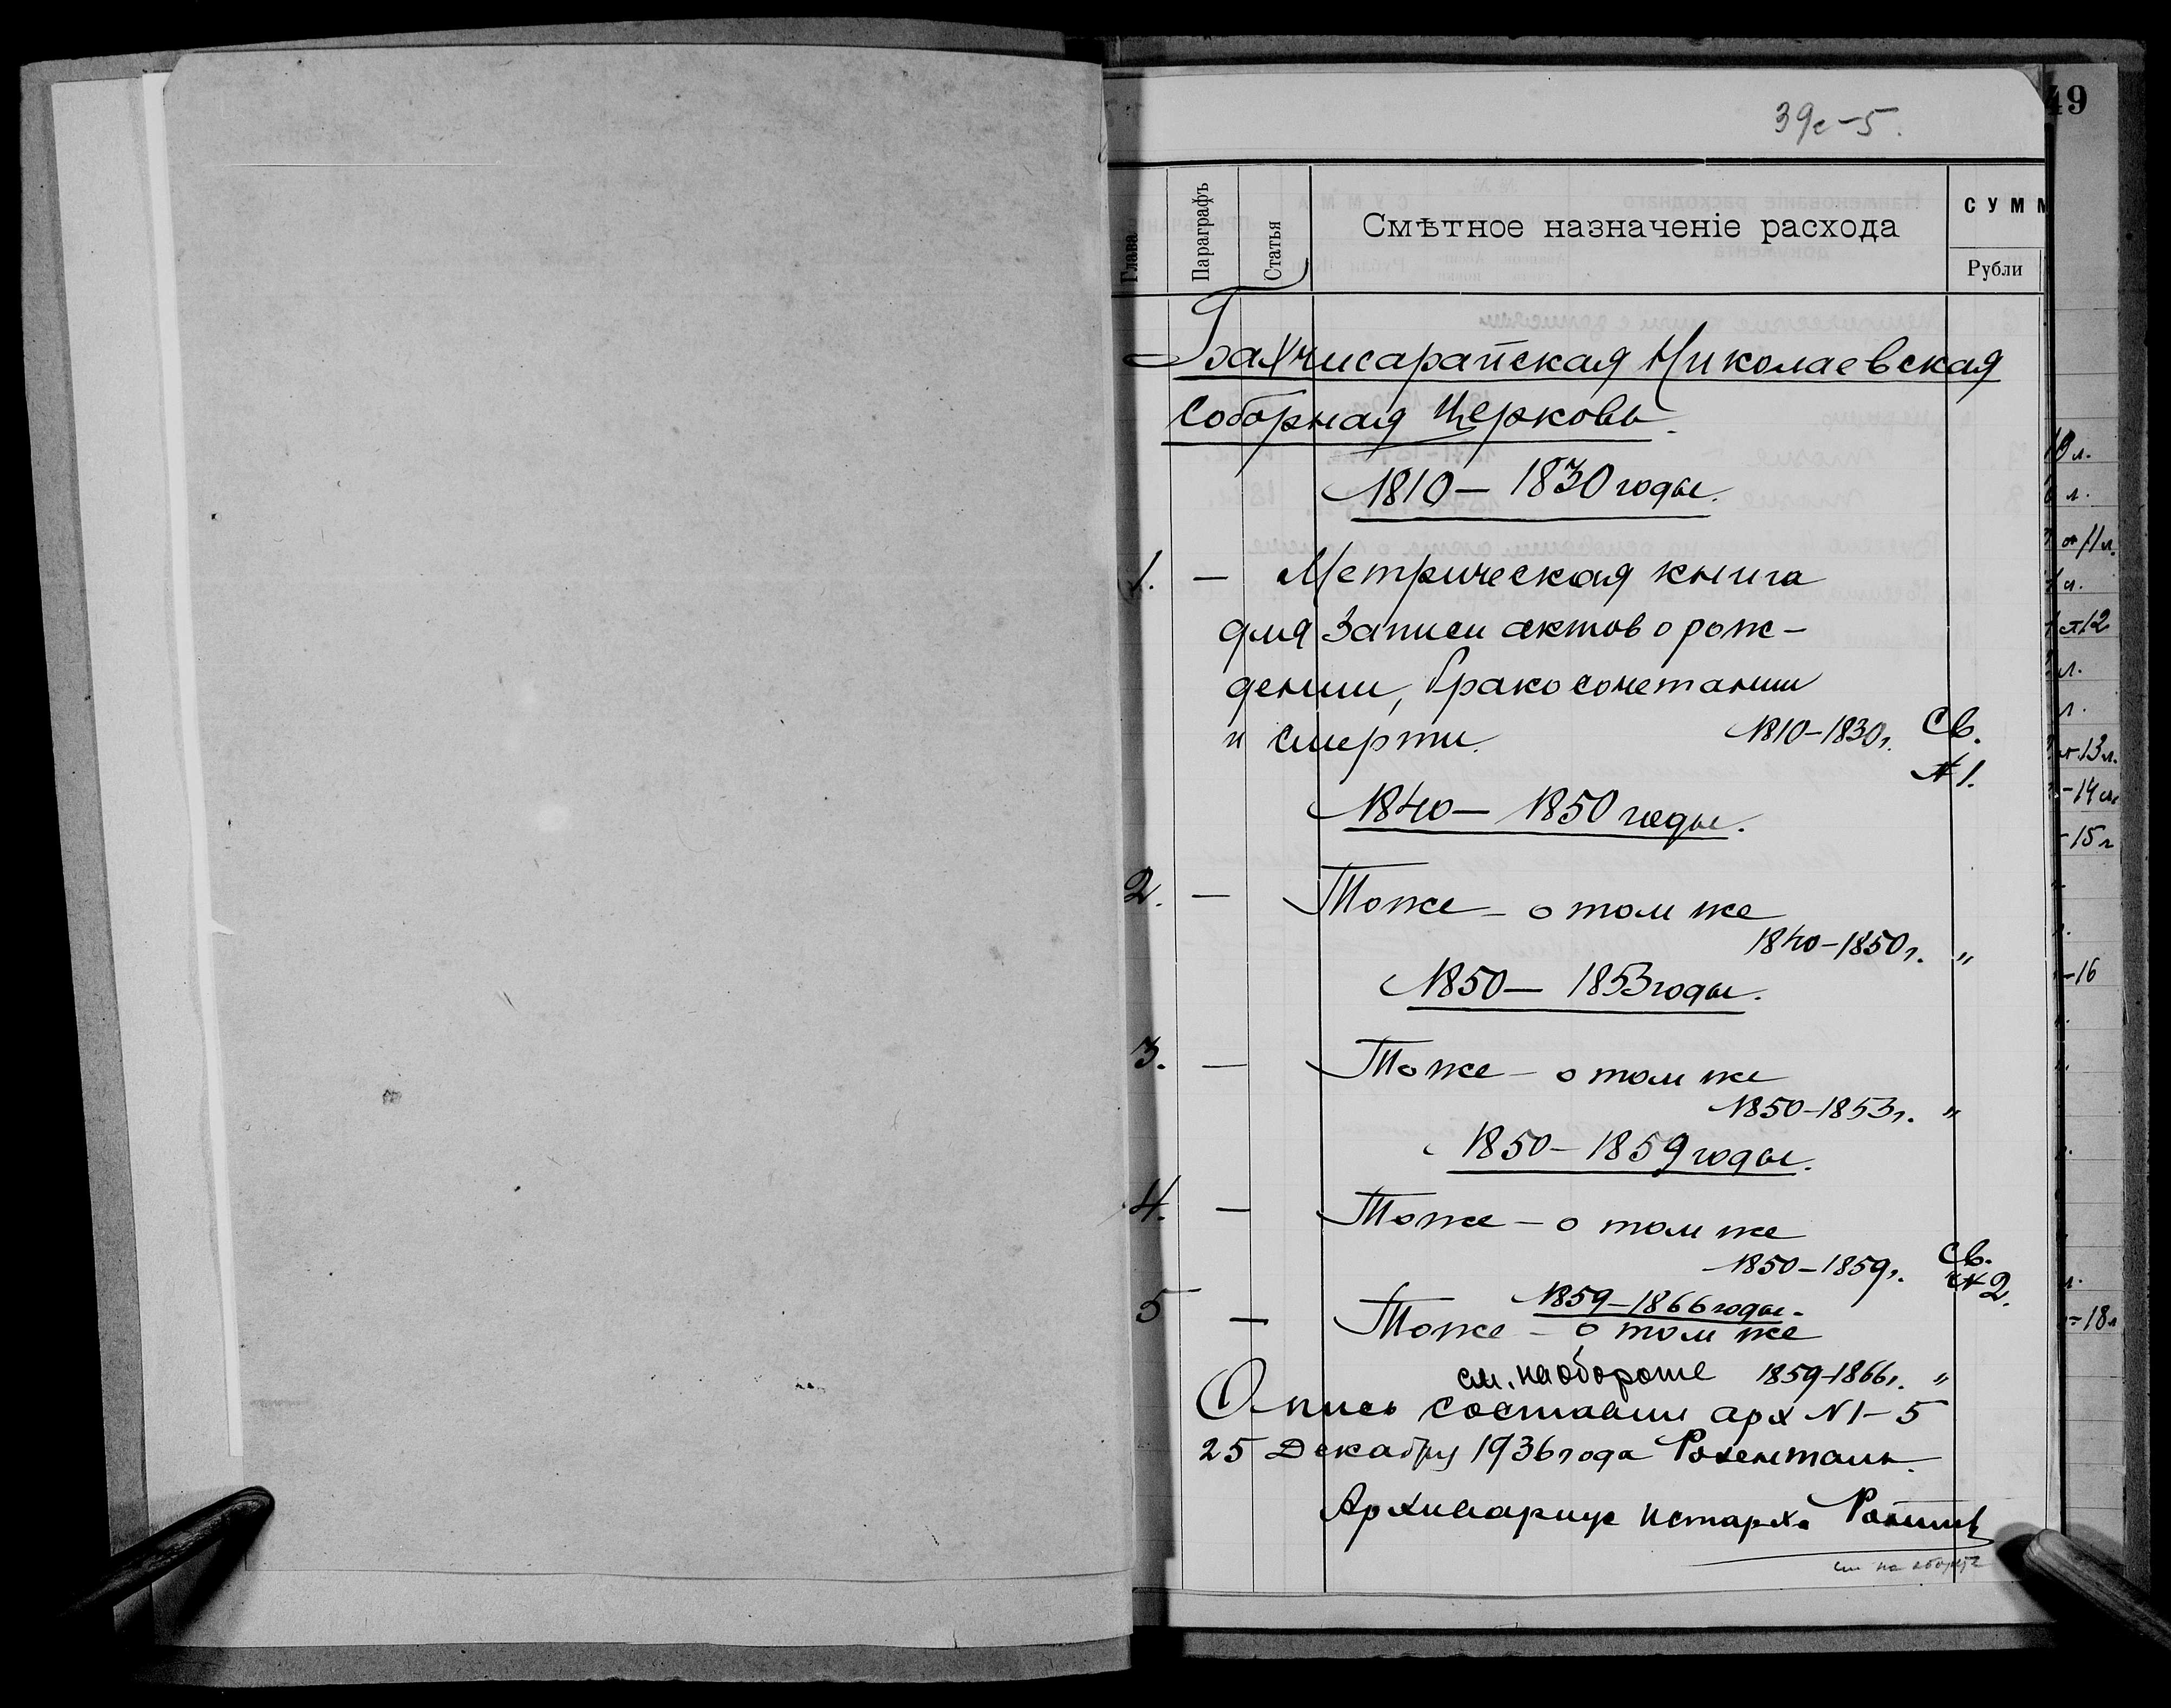 39е-5.
49
Глава Параграфъ Статья Смѣтное назначеніе расхода СУММ
Рубли
Бахчисарайская Николаевская
соборная церковь.
1810 — 1830 годы.
1. — Метрическая книга
для записи актов о рож-
дении, бракосочетании
и смерти. 1810-1830г. Св.
№ 1.
1840 — 1850 годы.
2. — Тоже - о том же
1840-1850г. "
1850 — 1853 годы.
3. — Тоже - о том же
1850-1853г. "
1850 - 1859 годы.
4. — Тоже - о том же
1850-1859г. Св.
№ 2.
1859-1866 годы.
5 — Тоже - о том же
см. на обороте 1859-1866г. "
Опись составил арх № 1-5
25 Декабря 1936 года Розенталь.
Архивариус Истарха
см на обороте
10 л.
11 л.
12
л.
л.
13 л.
-14 л.
-15 л
-16
-18 л